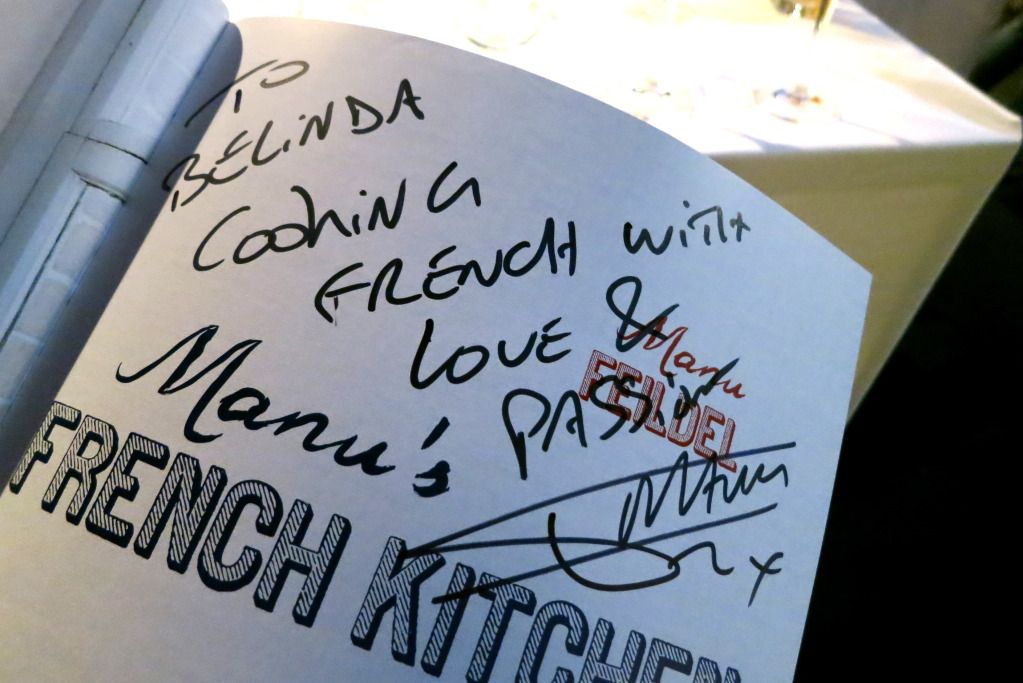 TO
BELINDA
COOKING
FRENCH WITH
LOVE &
PASSION
Manu
x
Manu
FEILDEL
Manu's
FRENCH KITCHEN